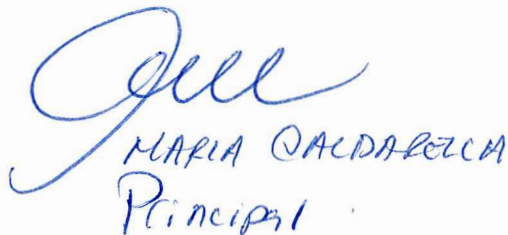 MARIA CALDARELLA
Principal